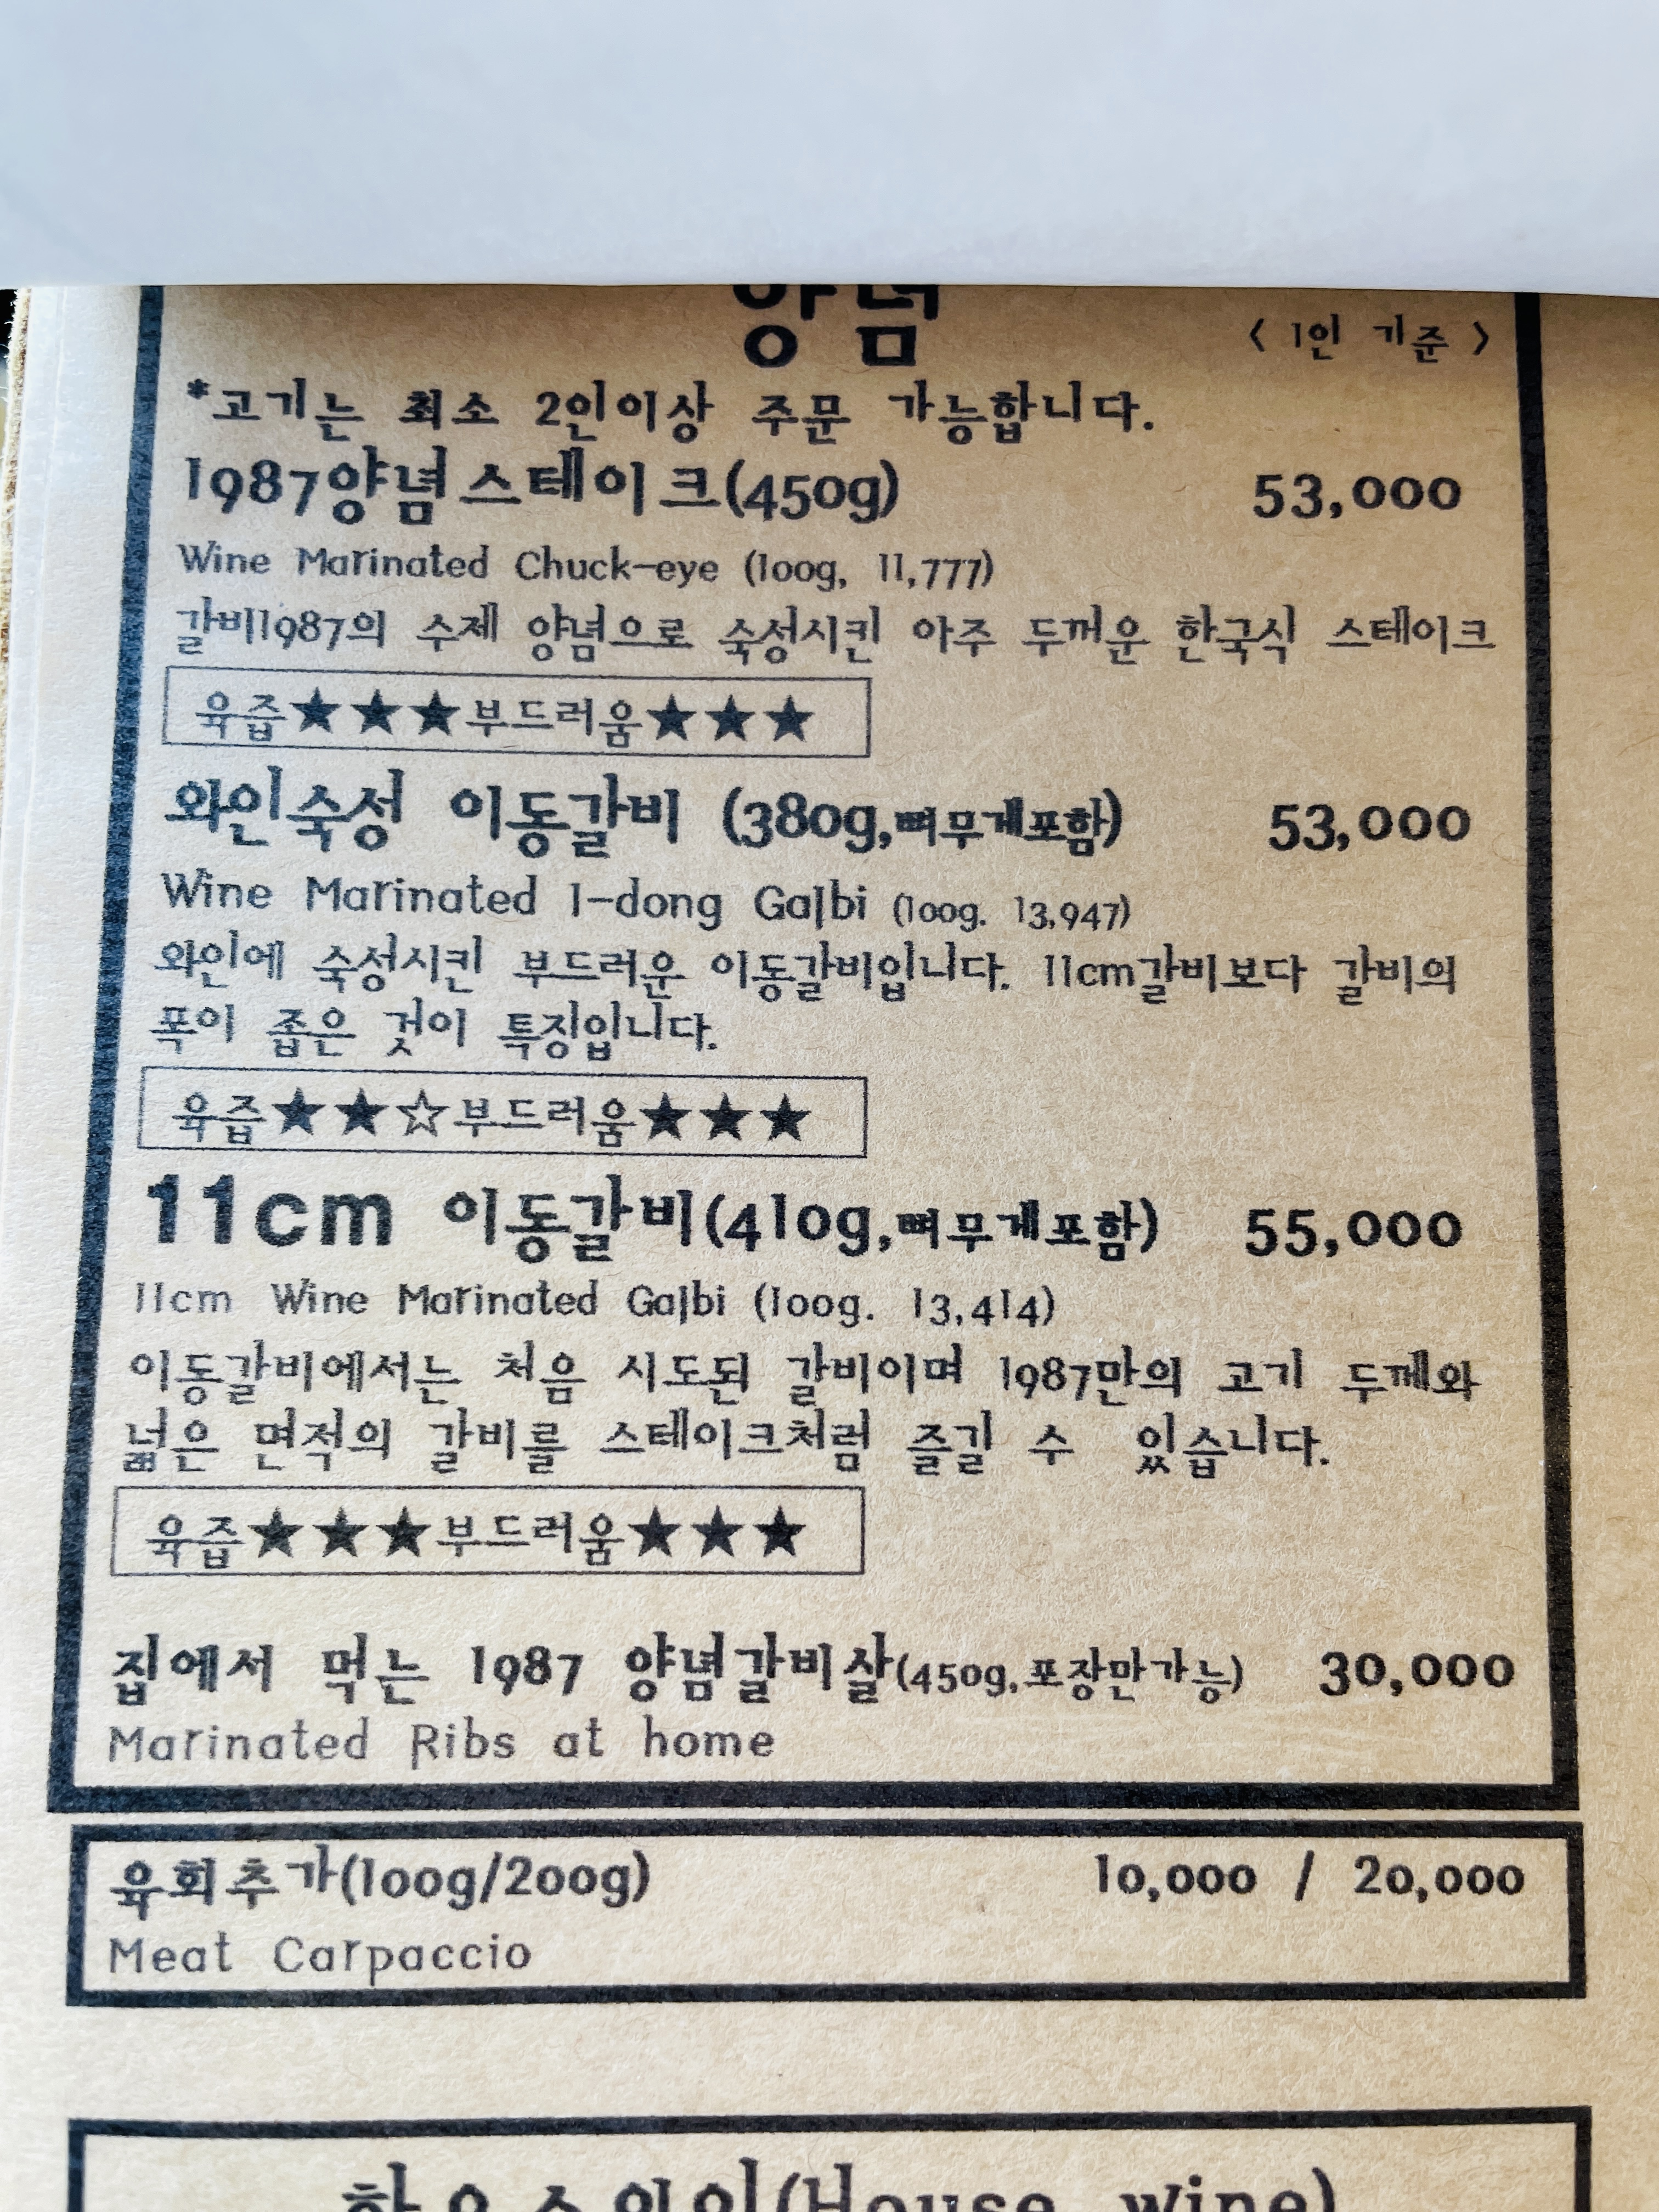 양념
< 1인 기준 >
*고기는 최소 2인이상 주문 가능합니다.
1987양념스테이크(450g) 53,000
Wine Marinated Chuck-eye (100g, 11,777)
갈비1987의 수제 양념으로 숙성시킨 아주 두꺼운 한국식 스테이크
육즙★★★부드러움★★★
와인숙성 이동갈비 (380g,뼈무게포함) 53,000
Wine Marinated I-dong Galbi (100g. 13,947)
와인에 숙성시킨 부드러운 이동갈비입니다. 11cm갈비보다 갈비의
폭이 좁은 것이 특징입니다.
육즙★★☆부드러움★★★
11cm 이동갈비(410g,뼈무게포함) 55,000
11cm Wine Marinated Galbi (100g. 13,414)
이동갈비에서는 처음 시도된 갈비이며 1987만의 고기 두께와
넓은 면적의 갈비를 스테이크처럼 즐길 수 있습니다.
육즙★★★부드러움★★★
집에서 먹는 1987 양념갈비살(450g,포장만가능) 30,000
Marinated Ribs at home
육회추가(100g/200g) 10,000 / 20,000
Meat Carpaccio
하우스와인(House wine)